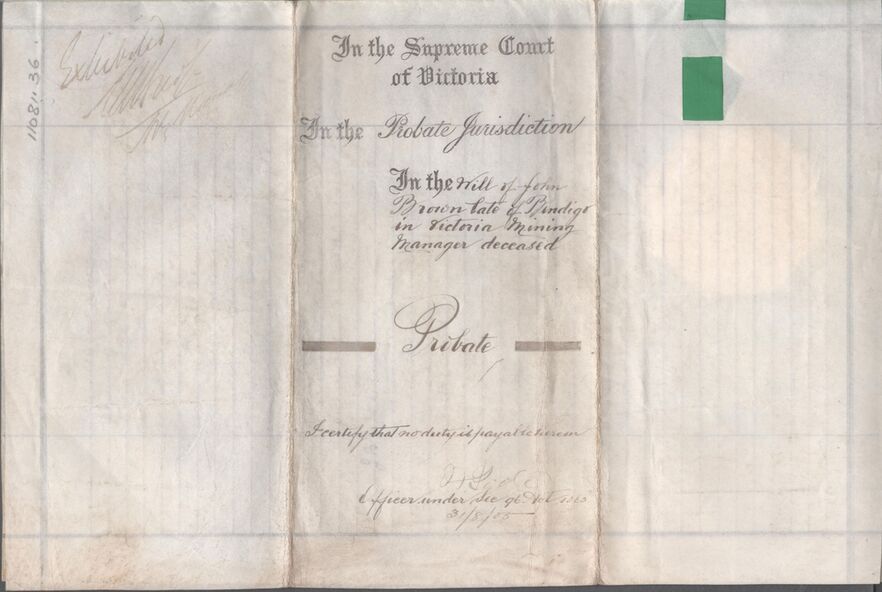 Exhibited
110811 36.
In the Supreme Court
of Victoria
In the Probate Jurisdiction
In the Will of John
Brown late of Bendigo
in Victoria Mining
Manager deceased
Probate
I certify that no duty is payable herein
Officer under Sec 96
31/8/05